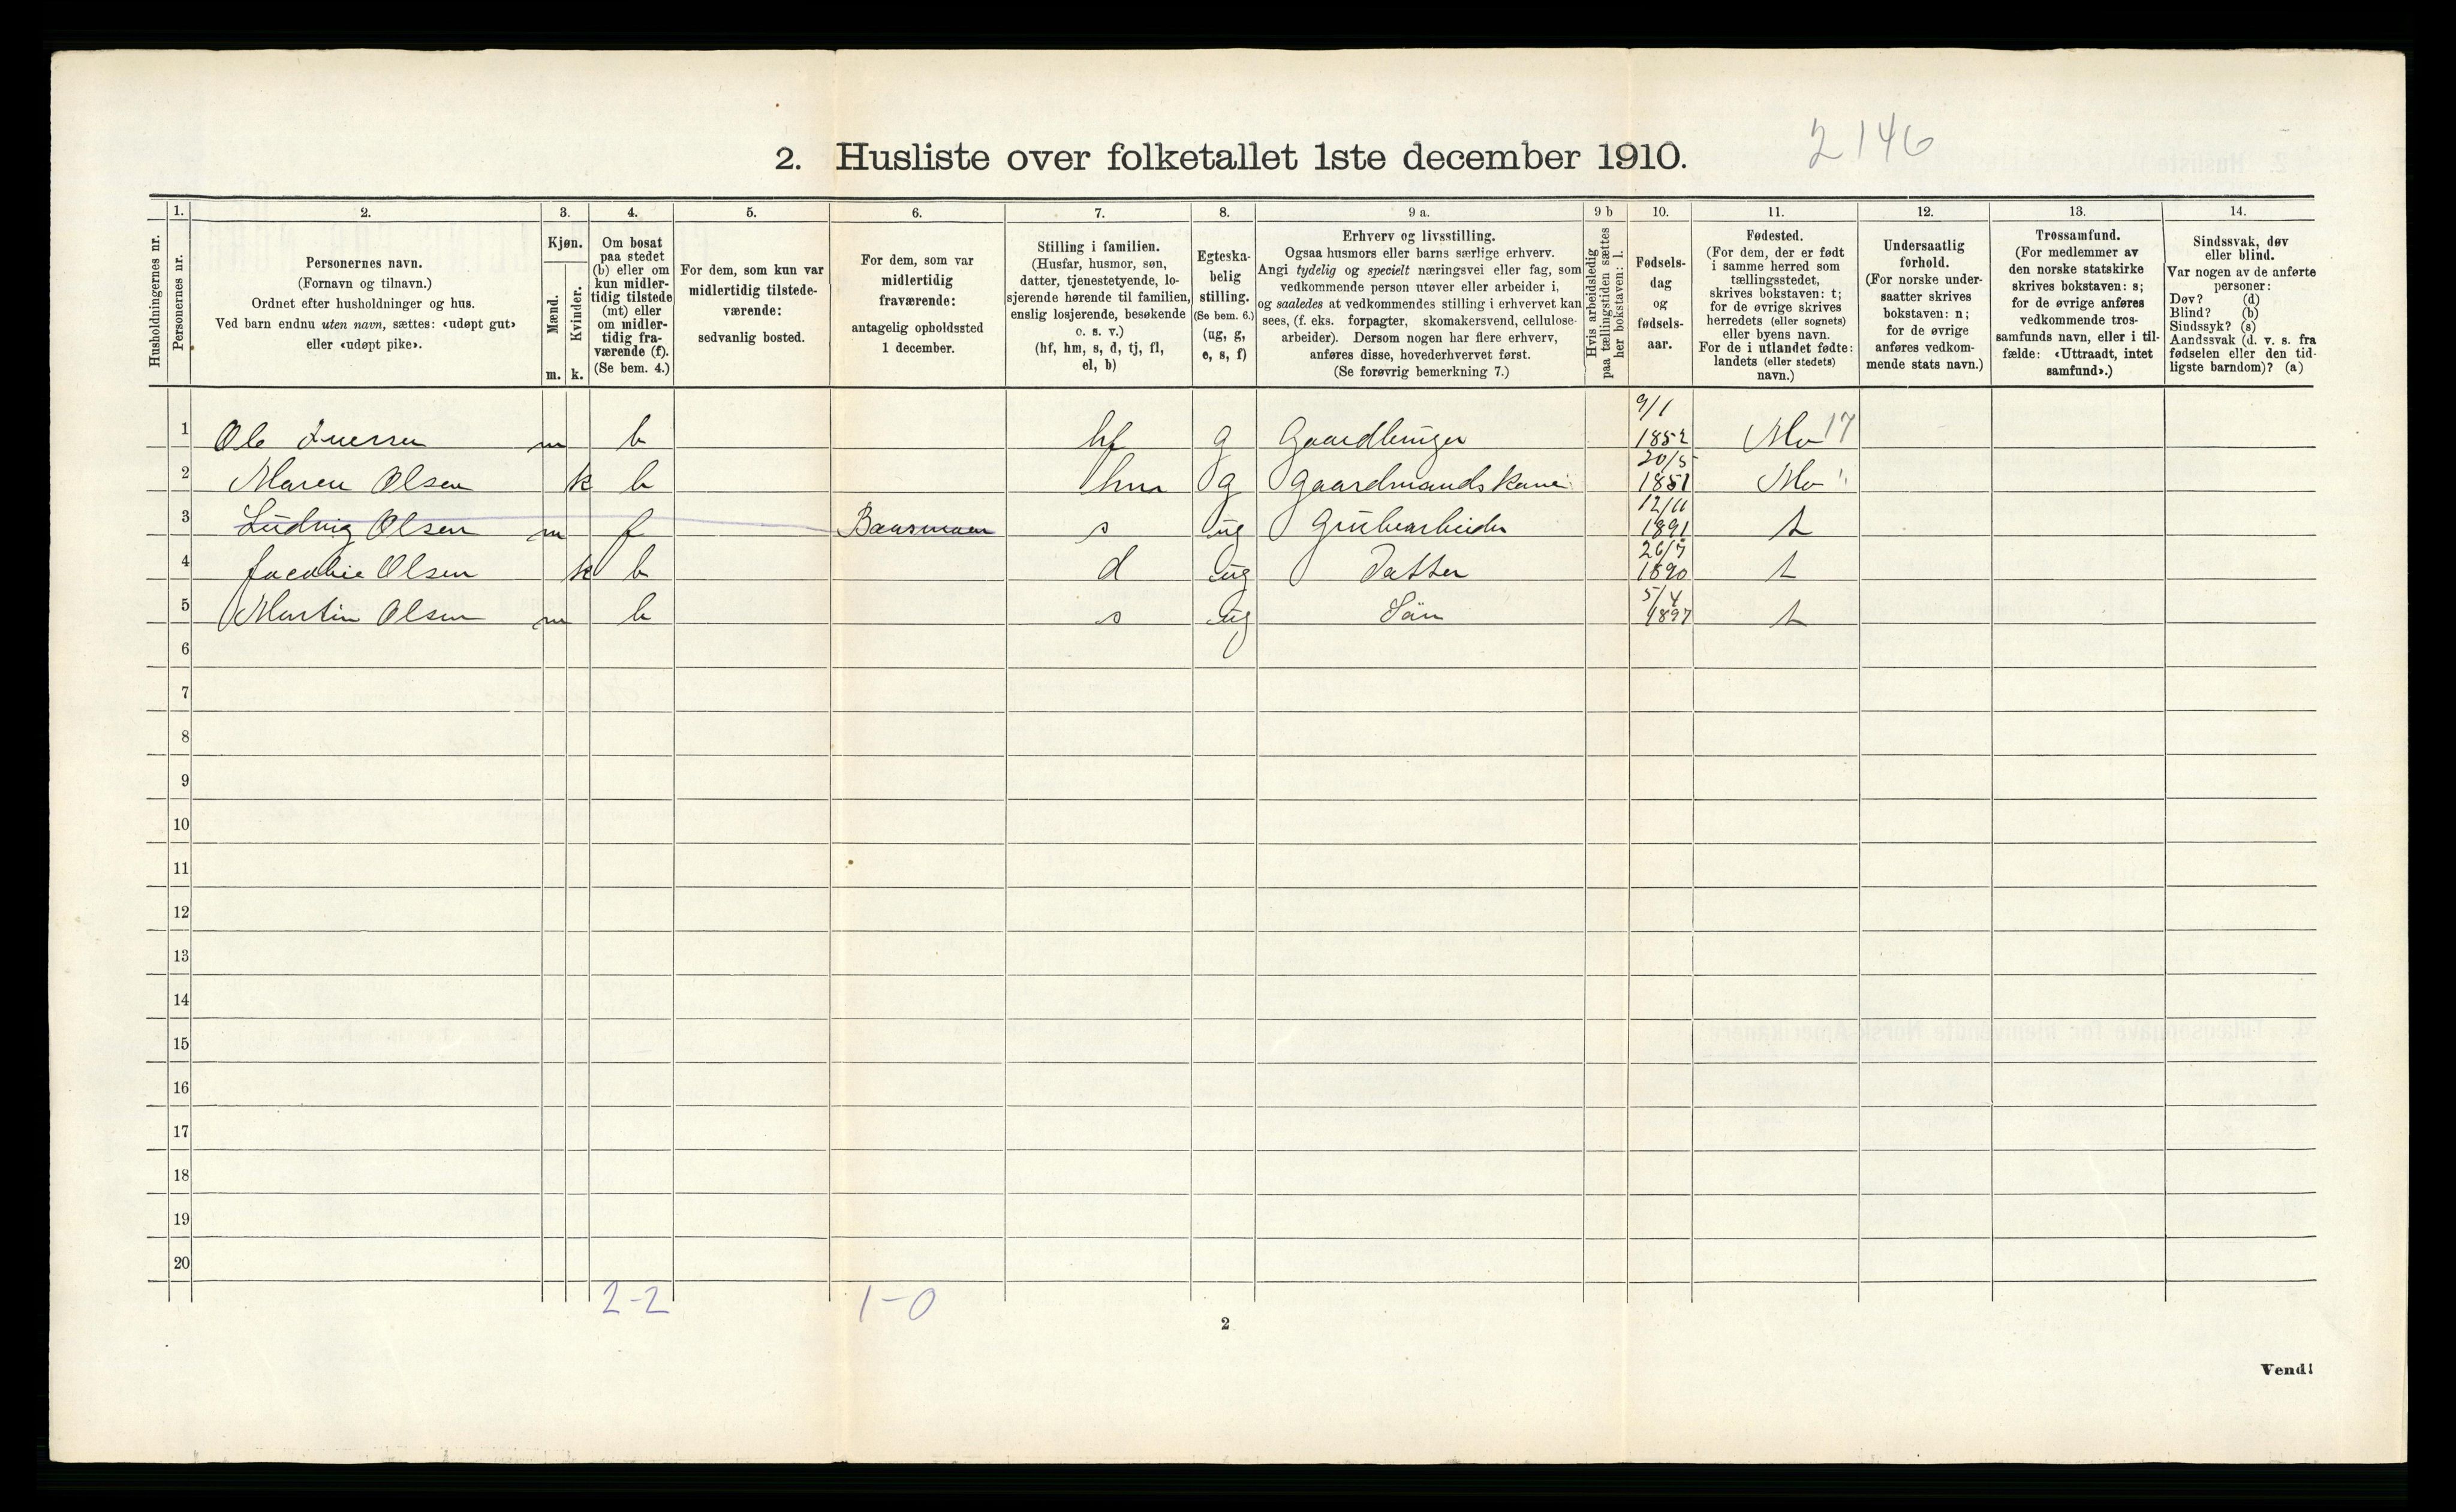 2. Husliste over folketallet 1ste december 1910.
2146
Husholdningernes nr.
1.
Personernes nr.
2.
Personernes navn.
(Fornavn og tilnavn.)
Ordnet efter husholdninger og hus.
Ved barn endnu uten navn, sættes: «udøpt gut»
eller «udøpt pike».
3.
Kjøn.
Mænd.
Kvinder.
m. k.
4.
Om bosat
paa stedet
(b) eller om
kun midler-
tidig tilstede
(mt) eller
om midler-
tidig fra-
værende (f).
(Se bem. 4.)
5.
For dem, som kun var
midlertidig tilstede-
værende:
sedvanlig bosted.
6.
For dem, som var
midlertidig
fraværende:
antagelig opholdssted
1 december.
7.
Stilling i familien.
(Husfar, husmor, søn,
datter, tjenestetyende, lo-
sjerende hørende til familien,
enslig losjerende, besøkende
o. s. v.)
(hf, hm, s, d, tj, fl,
el, b)
8.
Egteska-
belig
stilling.
(Se bem. 6.)
(ug, g,
e, s, f)
9 a.
Erhverv og livsstilling.
Ogsaa husmors eller barns særlige erhverv.
Angi tydelig og specielt næringsvei eller fag, som
vedkommende person utøver eller arbeider i,
og saaledes at vedkommendes stilling i erhvervet kan
sees, (f. eks. forpagter, skomakersvend, cellulose-
arbeider). Dersom nogen har flere erhverv,
anføres disse, hovederhvervet først.
(Se forøvrig bemerkning 7.)
9 b
Hvis arbeidsledig
paa tællingstiden sættes
her bokstaven: l.
10.
Fødsels-
dag
og
fødsels-
aar.
11.
Fødested.
(For dem, der er født
i samme herred som
tællingsstedet,
skrives bokstaven: t;
for de øvrige skrives
herredets (eller sognets)
eller byens navn.
For de i utlandet fødte:
landets (eller stedets)
navn.)
12.
Undersaatlig
forhold.
(For norske under-
saatter skrives
bokstaven: n;
for de øvrige
anføres vedkom-
mende stats navn.)
13.
Trossamfund.
(For medlemmer av
den norske statskirke
skrives bokstaven: s;
for de øvrige anføres
vedkommende tros-
samfunds navn, eller i til-
fælde: «Uttraadt, intet
samfund».)
14.
Sindssvak, døv
eller blind.
Var nogen av de anførte
personer:
Døv? (d)
Blind? (b)
Sindssyk? (s)
Aandssvak (d. v. s. fra
fødselen eller den tid-
ligste barndom)? (a)
1 Ole m b hf g Gaardbruger 9/1 1852 Mo 17
2 Maren Olsen k b hm g Gaardmandskone 20/5 1851 Mo "
3 Ludvig Olsen m f Baasmoen s ug Grubearbeider 12/11 1891 t
4 Jacobie Olsen k b d ug Datter 26/7 1890 t
5 Martin Olsen m b s ug Sön 5/4 1897 t
6
7
8
9
10
11
12
13
14
15
16
17
18
19
20
2-2 1-0
2
Vend!